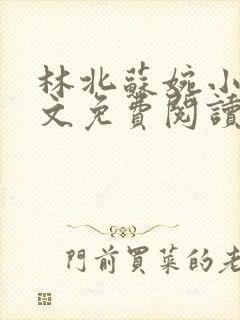 林北蘇婉小
文免費閱讀
門前買菜的老